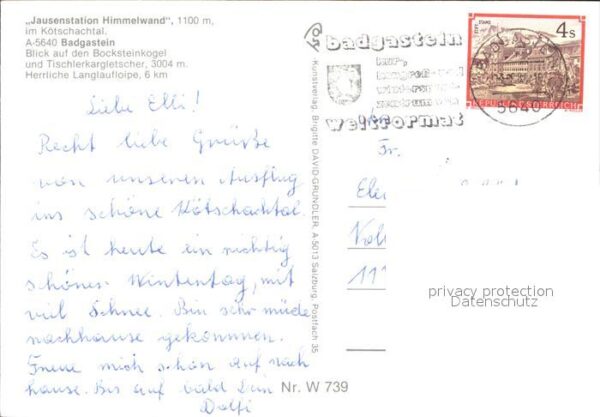 „Jausenstation Himmelwand", 1100 m,
im Kötschachtal.
A-5640 Badgastein
Blick auf den Bocksteinkogel
und Tischlerkargletscher, 3004 m.
Herrliche Langlaufloipe, 6 km
Liebe Elli!
Recht liebe Grüße
von unseren Ausflug
ins schöne Kötschachtal.
Es ist heute ein richtig
schöner Wintertag, mit
viel Schnee. Bin sehr müde
nachhause gekommen.
Freue mich schon auf nach
hause. Bis auf bald Dein
Dolfi
Kunstverlag Brigitte DAVID-GRÜNDLER, A 5013 Salzburg, Postfach 35
Nr. W 739
badgastein
kur-,
kongreß- und
wintersport-
zentrum von
weltformat
4 S
REPUBLIK ÖSTERREICH
BADGASTEIN
5640
Fr.
111
privacy protection
Datenschutz